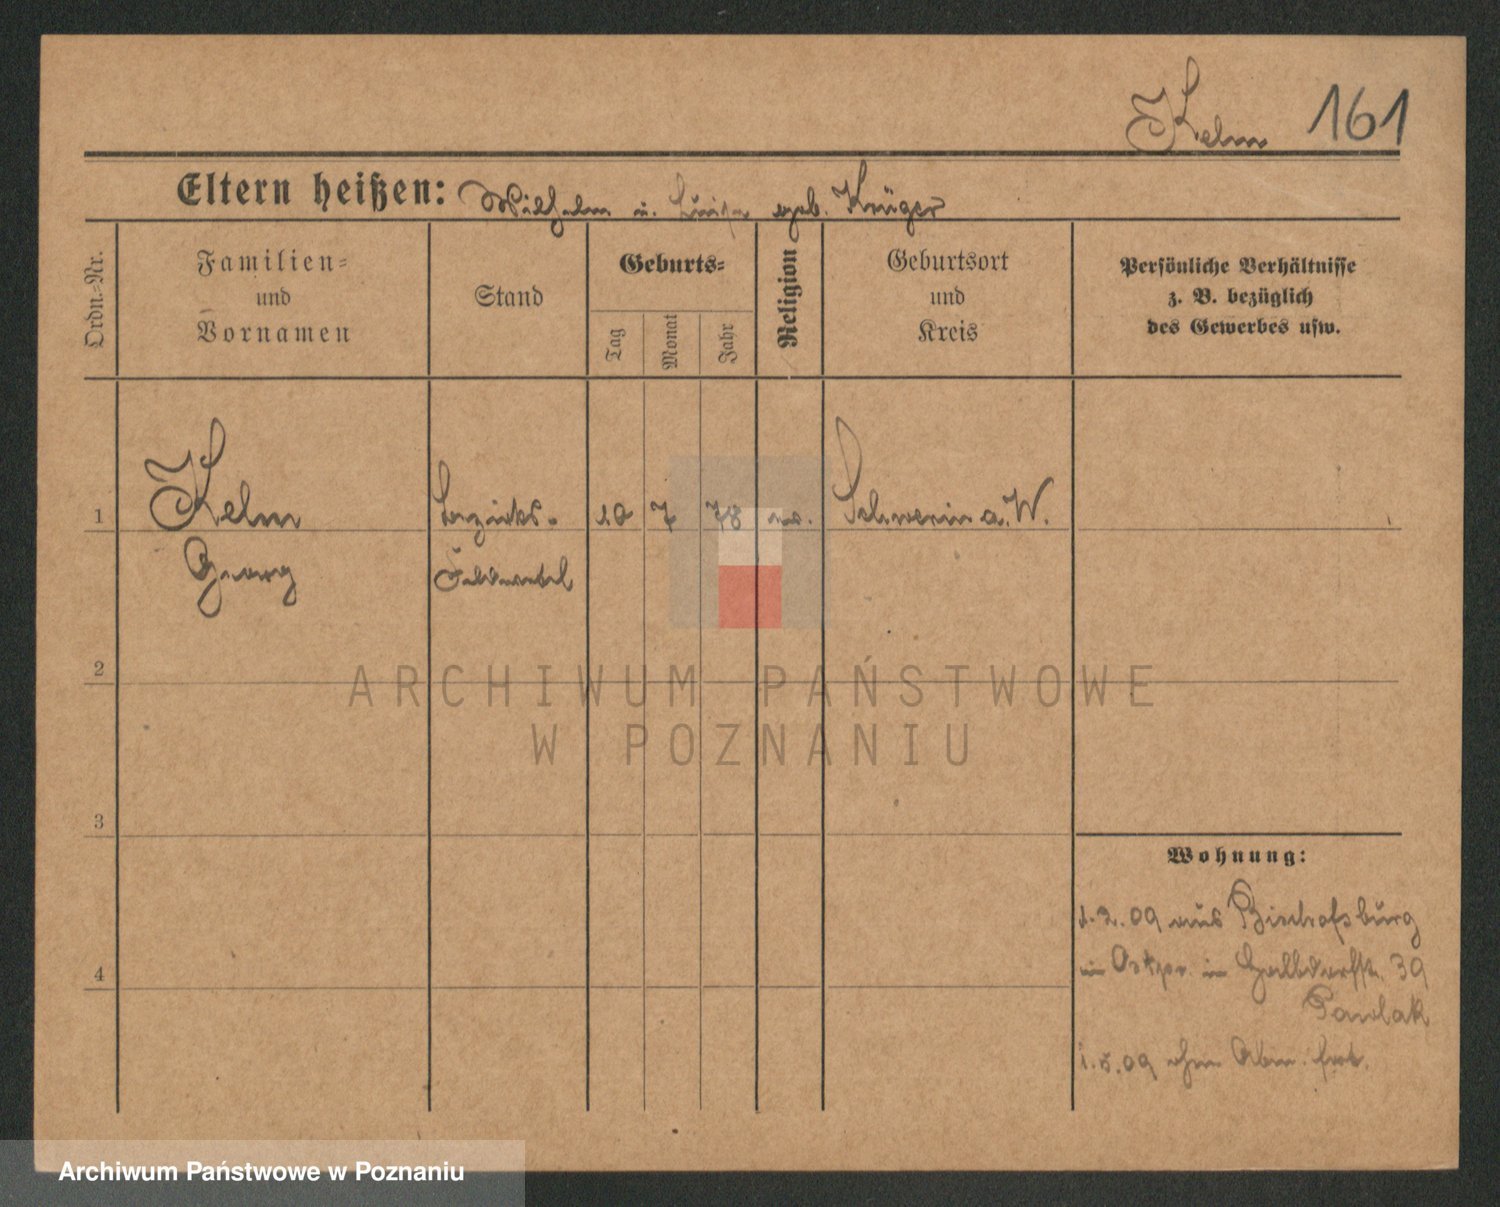 Kelm 161
Eltern heißen: Wilhelm u. Luise geb. Krüger
Ordn.-Nr.
Familien-
und
Vornamen
Stand
Geburts-
Tag
Monat
Jahr
Religion
Geburtsort
und
Kreis
Persönliche Verhältnisse
z. B. bezüglich
des Gewerbes usw.
1 Kelm Bezirks- 10 7 78 ev. Schwerin a. W.
Georg Feldwebel
2
3
4
ARCHIWUM PAŃSTWOWE
W POZNANIU
Wohnung:
1.2.09 aus Bischofsburg
in Ostpr. in 39
Pawlak
1.5.09 ohne Abm. fort.
Archiwum Państwowe w Poznaniu